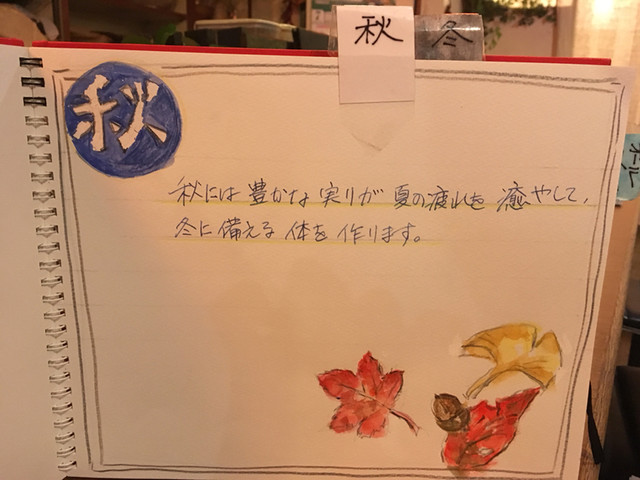 秋 冬
秋
秋には豊かな実りが夏の疲れを癒やして、
冬に備える体を作ります。